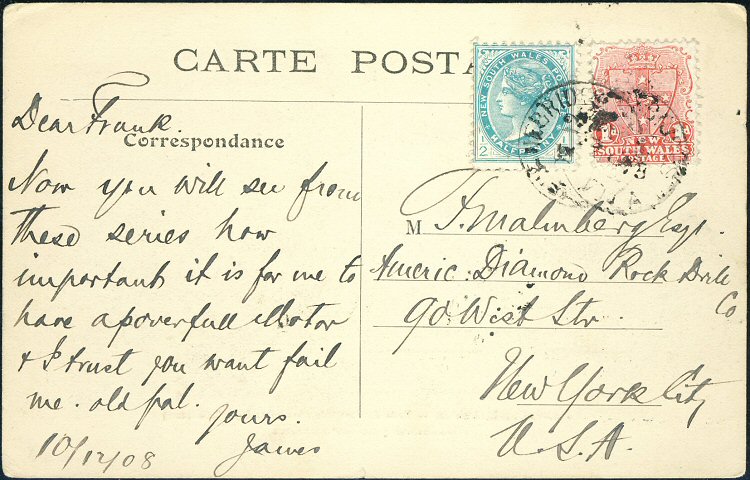 CARTE POSTA
Dear Frank.
Correspondance
Now you will see from
these series how
important it is for me to
have a poverfull Motor
& I trust you want fail
me. old pal.
yours.
James
10/12/08
NEW SOUTH WALES POSTAGE
HALF
2
1d
NEW
SOUTH WALES
POSTAGE
M F. Malmberg Esqr.
Americ. Diamond Rock Drill
Co
90 West Str.
New York City
U.S.A.